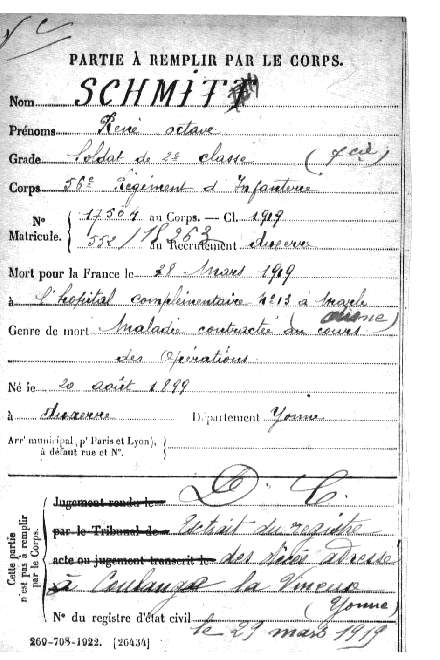 PARTIE À REMPLIR PAR LE CORPS.
Nom SCHMITT
Prénoms René octave
Grade Soldat de 2e classe (7 cie)
Corps 56e Régiment d'Infanterie
No Matricule. { 17507 au Corps. — Cl. 1919
552/18263 au Recrutement Auxerre
Mort pour la France le 28 Mars 1919
à l'hopital complémentaire à
Genre de mort Maladie contractée au cours
des Opérations.
Né le 20 août 1899
à Auxerre Département Yonne
Arrt municipal, (pr Paris et Lyon),
à défaut rue et No.
Cette partie n'est pas à remplir par le Corps.
D. C.
Jugement rendu le
par le Tribunal de Extrait du registre
acte ou jugement transcrit le des Décès adressé
à Coulanges la Vineuse
(Yonne)
No du registre d'état civil le 29 mars 1919
269-708-1922. [26434]